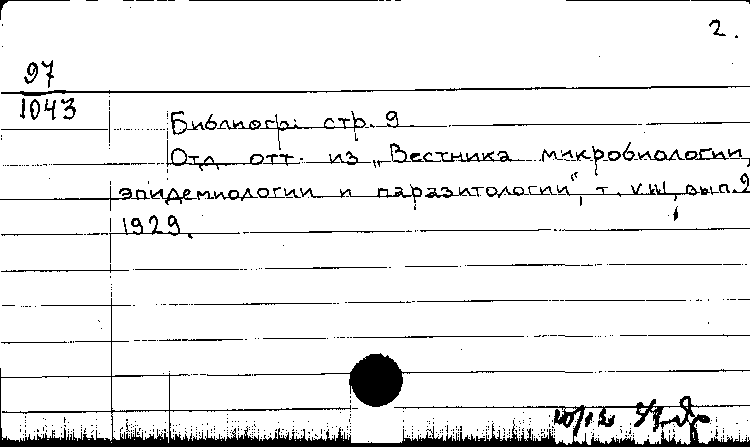 2.
97
1043
Библиогр. стр. 9
Отд. отт. из „Вестника микробиологии,
эпидемиологии и паразитологии", т. VIII, вып. 2
1929.